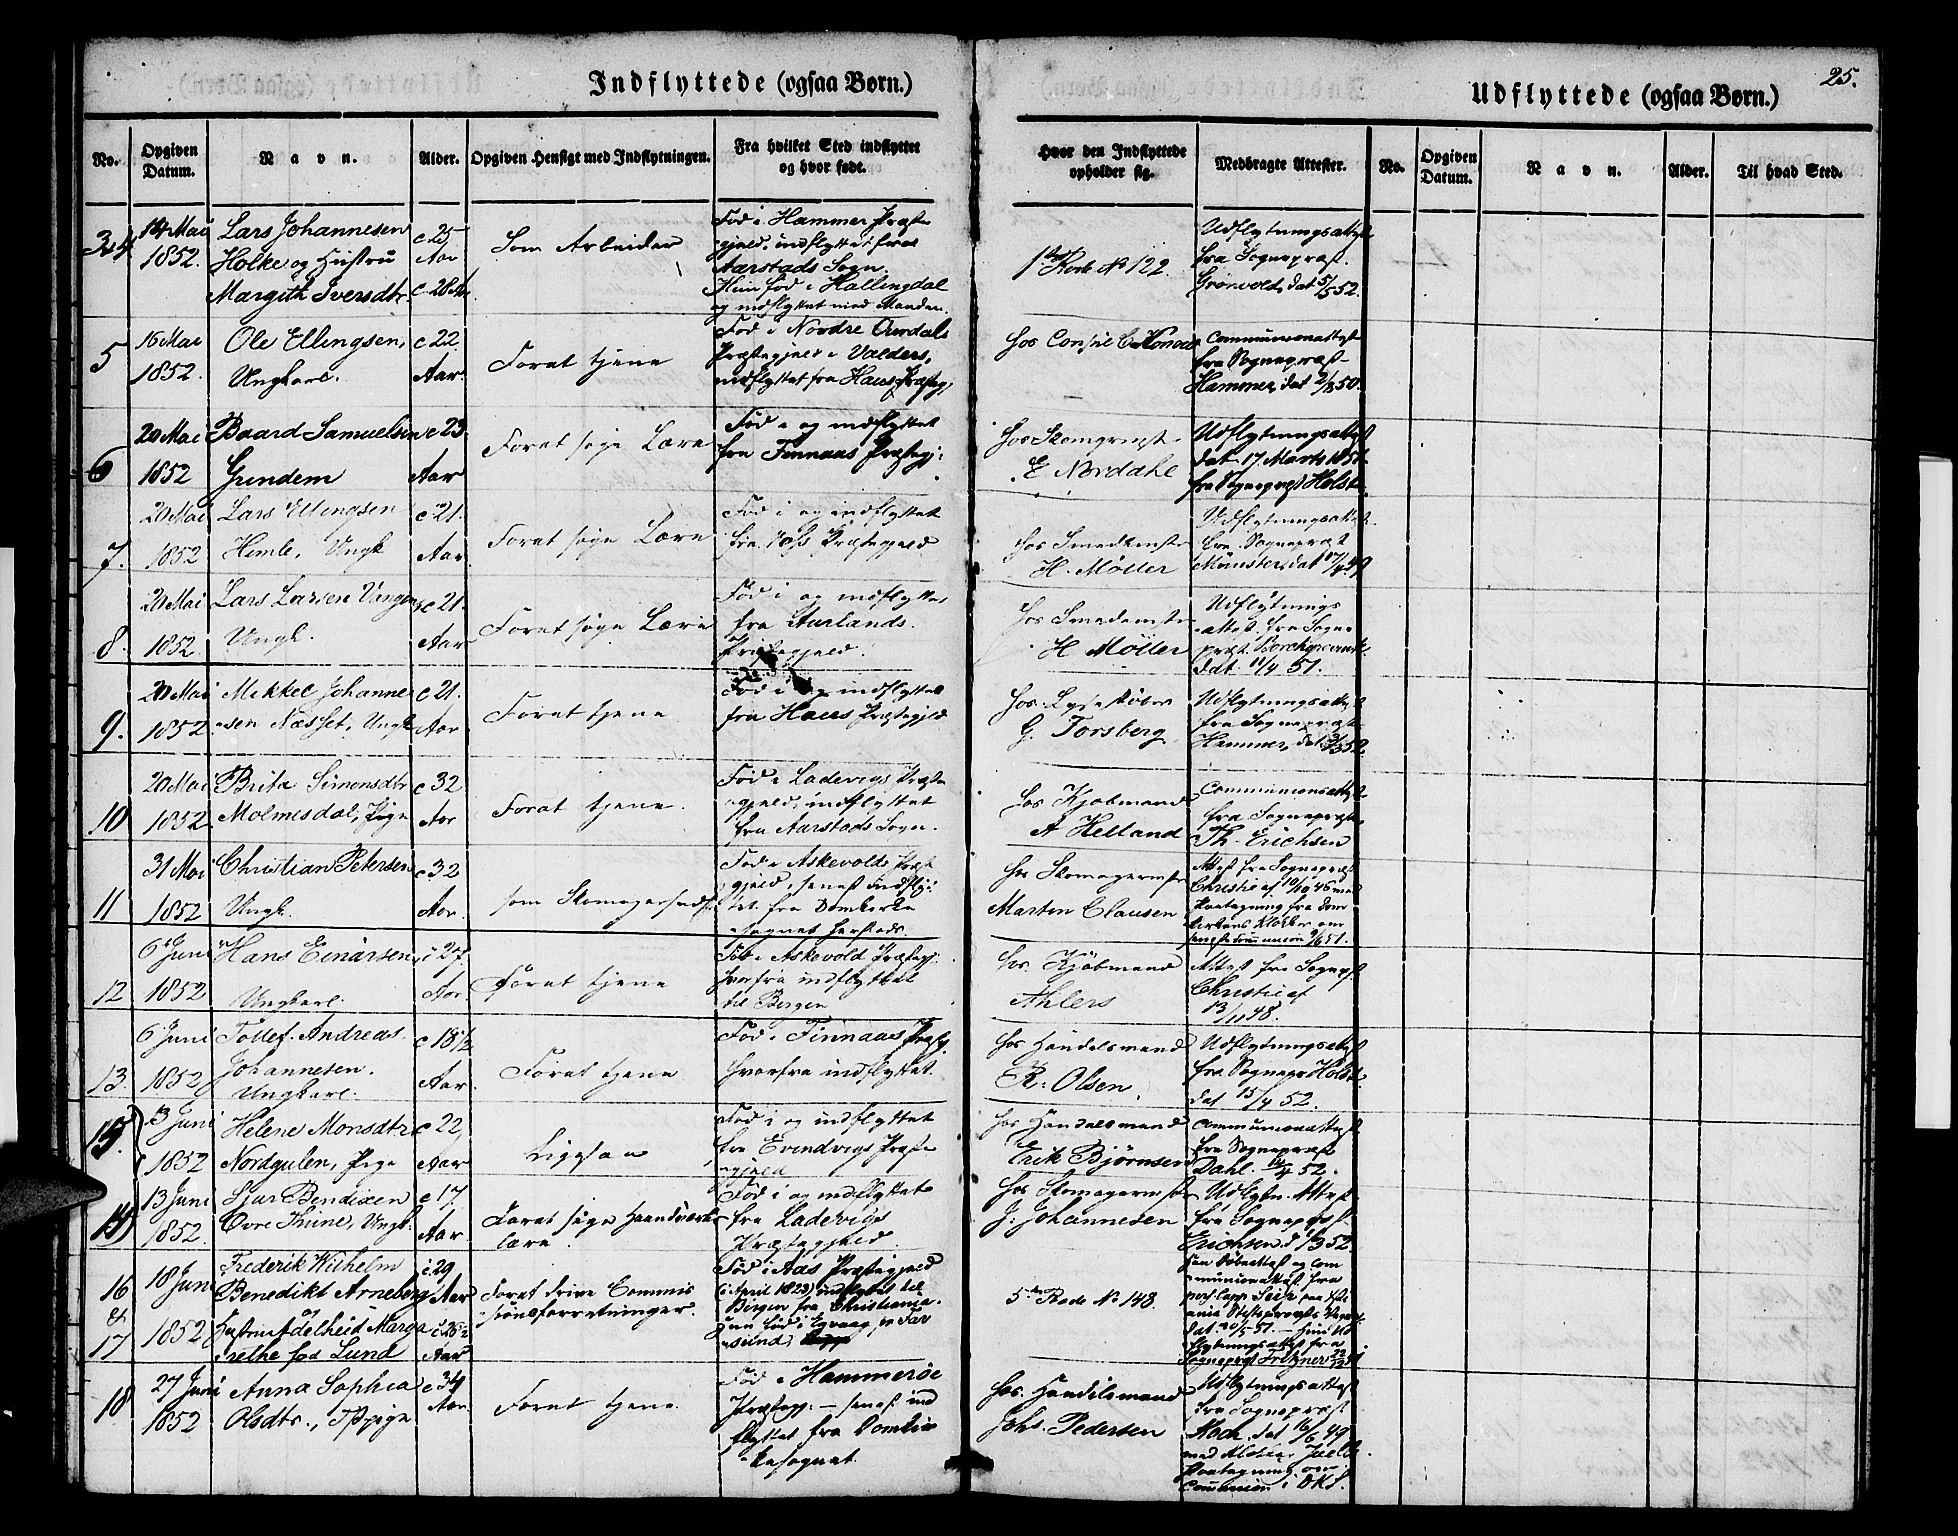 Indflyttede (ogsaa Børn.)
Udflyttede (ogsaa Børn.)
25.
No.
Opgiven Datum.
Navn.
Alder.
Opgiven Hensigt med Indflytningen.
Fra hvilket Sted indflyttet og hvor født.
Hvor den Indflyttede opholder sig.
Medbragte Attester.
No.
Opgiven Datum.
Navn.
Alder.
Til hvad Sted.
3 & 4
14 Mai
1852.
Lars Johannesen
Holke og Hustru
Margith Iversdtr.
c 25
Aar
c. 28 Ar.
Som Arbeider
Fød i Hammer Præste
gjeld, indflyttet fra
Aarstads Sogn.
Hun fød i Hallingdal
og indflyttet med Manden.
1ste Rode No 122.
Udflytningsattest
fra Sognepræst
Grønvold, dat 5/5 52.
5
16 Mai
1852.
Ole Ellingsen,
Ungkarl.
c 22
Aar.
Forat tjene
Fød i Nordre Aurdals
Præstegjeld i Valders,
indflyttet fra Haus Præsteg.
Hos Consul Konow
Communionattest
fra Sognepræst
Hammer, dat 2/8 50.
6
20 Mai
1852
Baard Samuelsen
Grindem
c 23
Aar
Forat søge Lære
Fød i og indflyttet
fra Finnaas Præstegj:
Hos
E Nordahl
Udflytningsattest
dat. 17 Marts 1851
fra Sognepræst Holst.
7.
20 Mai
1852
Lars Ellingsen
Himle, Ungk
c 21.
Aar.
Forat søge Lære
Fød i og indflyttet
fra Voss Præstegjeld
Hos Smedemester
H. Møller
Udflytningsattest
fra Sognepræst
Münster, dat 17/4 49
8.
20 Mai
1852.
Lars Larsen Vangen
Ungk.
c 21.
Aar
Forat søge Lære
Fød i og indflyttet
fra Aurlands
Præstegjeld.
Hos Smedemester
H Møller
Udflytnings
attest fra Sogne
præst Borchgrevink
dat 11/4 51.
9.
20 Mai
1852
Mikkel Johanne
sen Næsset, Ungk
c 21.
Aar
Forat tjene
Fød i og indflyttet
fra Haus Præstegjeld
Hos Lysestøber
G. Forsberg
Udflytningsattest
fra Sognepræst
Hammer, dat
10
20 Mai
1852
Brita Simonsdtr
Molmesdal, Pige
c 32
Aar
Forat tjene.
Fød i Ladevigs Præste
gjeld, indflyttet
fra Aarstads Sogn.
Hos Kjøbmand
A Helland
Communionsattest
fra Sognepræst
Th. Erichsen
11
31 Mai
1852
Christian Petersen
Ungk.
c 32
Aar.
som Skomagersvend
Fød i Askevold Præst
gjeld, senest indflyt
tet fra Domkirke
sognet hersteds.
Hos Skomagermstr
Marten Clausen
Attest fra Sognepræst
Christie af 10/10 46 med
Paategning fra Dom
kirkens Klokker om
seneste Communion 9/6 51.
12
6 Juni
1852
Hans Einarsen
Ungkarl.
c 27
Aar.
Forat tjene
Fød i Askevold Præstegj:
hvorfra indflyttet
til Bergen
hos Kjøbmand
Ahlers
Attest fra Sognepst
Christie af
13/11 48.
13.
6 Juni
1852
Tollef Andreas
Johannesen.
Ungkarl.
c 18 1/2
Aar.
Forat tjene
Fød i Finnaas Præstg.
hvorfra indflyttet.
Hos Handelsmand
R. Olsen.
Udflytningsattest
fra Sognepr Holst
dat 15/4 52.
15.
13 Juni
1852
Helene Monsdtr
Nordgulen, Pige
c 22,
Aar
Ligesaa
Fød i og indflyttet
fra Evindvigs Præste
gjeld
Hos Handelsmand
Erik Bjørnsen
Communionattest
fra Sognepræst
Dahl. 14/4 52.
13 Juni
1852.
Sjur Bendixen
Øvre Thune, Ungk.
c 17
Aar
Forat søge Haandværks
lære.
Fød i og indflyttet
fra Ladevigs
Præstegjeld.
Hos Skomagermstr
J. Johannesen
Udflytn. Attest
fra Sognepræst
16
&
17
18 Juni
1852
Frederik Wilhelm
Benedikt Arneberg
og
Hustru Adelheid Marga
rethe fød Lund
c. 29
Aar
Aar
Forat drive Commis
sionsforretninger.
Fød i Aas Præstegjeld
(i April 1823) indflyttet til
Bergen fra Christiania.
Hun fød i Egvaag pr Far
sund
5te Rode No 148.
18
27 Juni
1852
Anna Sophia
Olsdtr.,
c 34
Aar
Forat tjene.
Fød i Hammerøe
Præstegj: — senest ind
flyttet fra Domkir
kesognet.
Hos Handelsmand
Johs. Pedersen
Udflytningsattest
fra Sognepræst
Koch, dat 16/6 49
med Klokker Juells
Paategning om
Communion i DK.